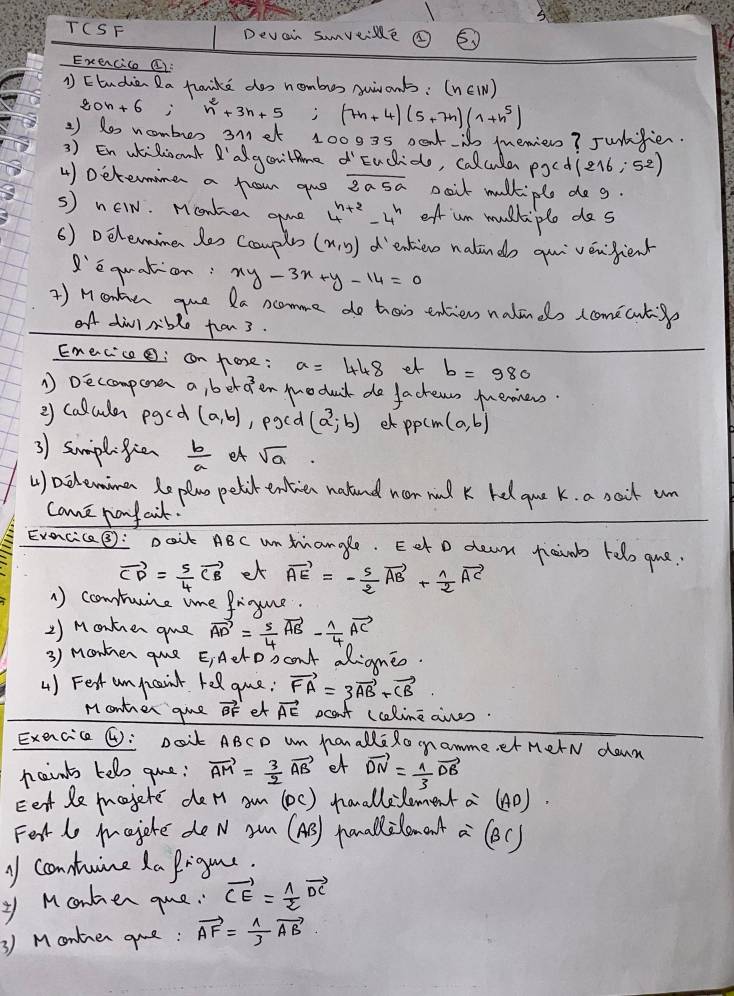 TCSF | Devoir Surveillé ① S1
Exercice ①:
1) Etudier la parité des nombres suivants : (n∈IN)
20n + 6 ; n² + 3n + 5 ; (7n + 4)(5 + 7n)(1 + n⁵)
2) les nombres 311 et 100935 sont-ils premiers ? Justifier.
3) En utilisant l'algorithme d'Euclide, calculer pgcd(216 ; 52)
4) Déterminer a pour que 2a5a soit multiple de 9.
5) n∈IN. Montrer que 4ⁿ⁺² - 4ⁿ est un multiple de 5
6) Déterminer les couples (x,y) d'entiers naturels qui vérifient
l'équation : xy - 3x + y - 14 = 0
7) Montrer que la somme de trois entiers naturels consécutifs
est divisible par 3.
Exercice ②: on pose : a = 448 et b = 980
1) Décomposer a, b et a³ en produit de facteurs premiers.
2) calculer pgcd (a,b), pgcd(a³;b) et ppcm(a,b)
3) simplifier b/a et √a .
4) Déterminer le plus petit entier naturel non nul K tel que K.a soit un
carré parfait.
Exercice ③: soit ABC un triangle. E et D deux points tels que :
CD = 5/4 CB et AE = -5/2 AB + 1/2 AC
1) construire une figure.
2) Montrer que AD = 5/4 AB - 1/4 AC
3) Montrer que E, A et D sont alignés.
4) F est un point tel que : FA = 3AB + CB.
Montrer que BF et AE sont colinéaires.
Exercice ④: soit ABCD un parallélogramme et M et N deux
points tels que : AM = 3/2 AB et DN = 1/3 DB
E est le projeté de M sur (DC) parallèlement à (AD) .
F est le projeté de N sur (AB) parallèlement à (BC)
1) construire la figure.
2) Montrer que : CE = 1/2 DC
3) Montrer que : AF = 1/3 AB.